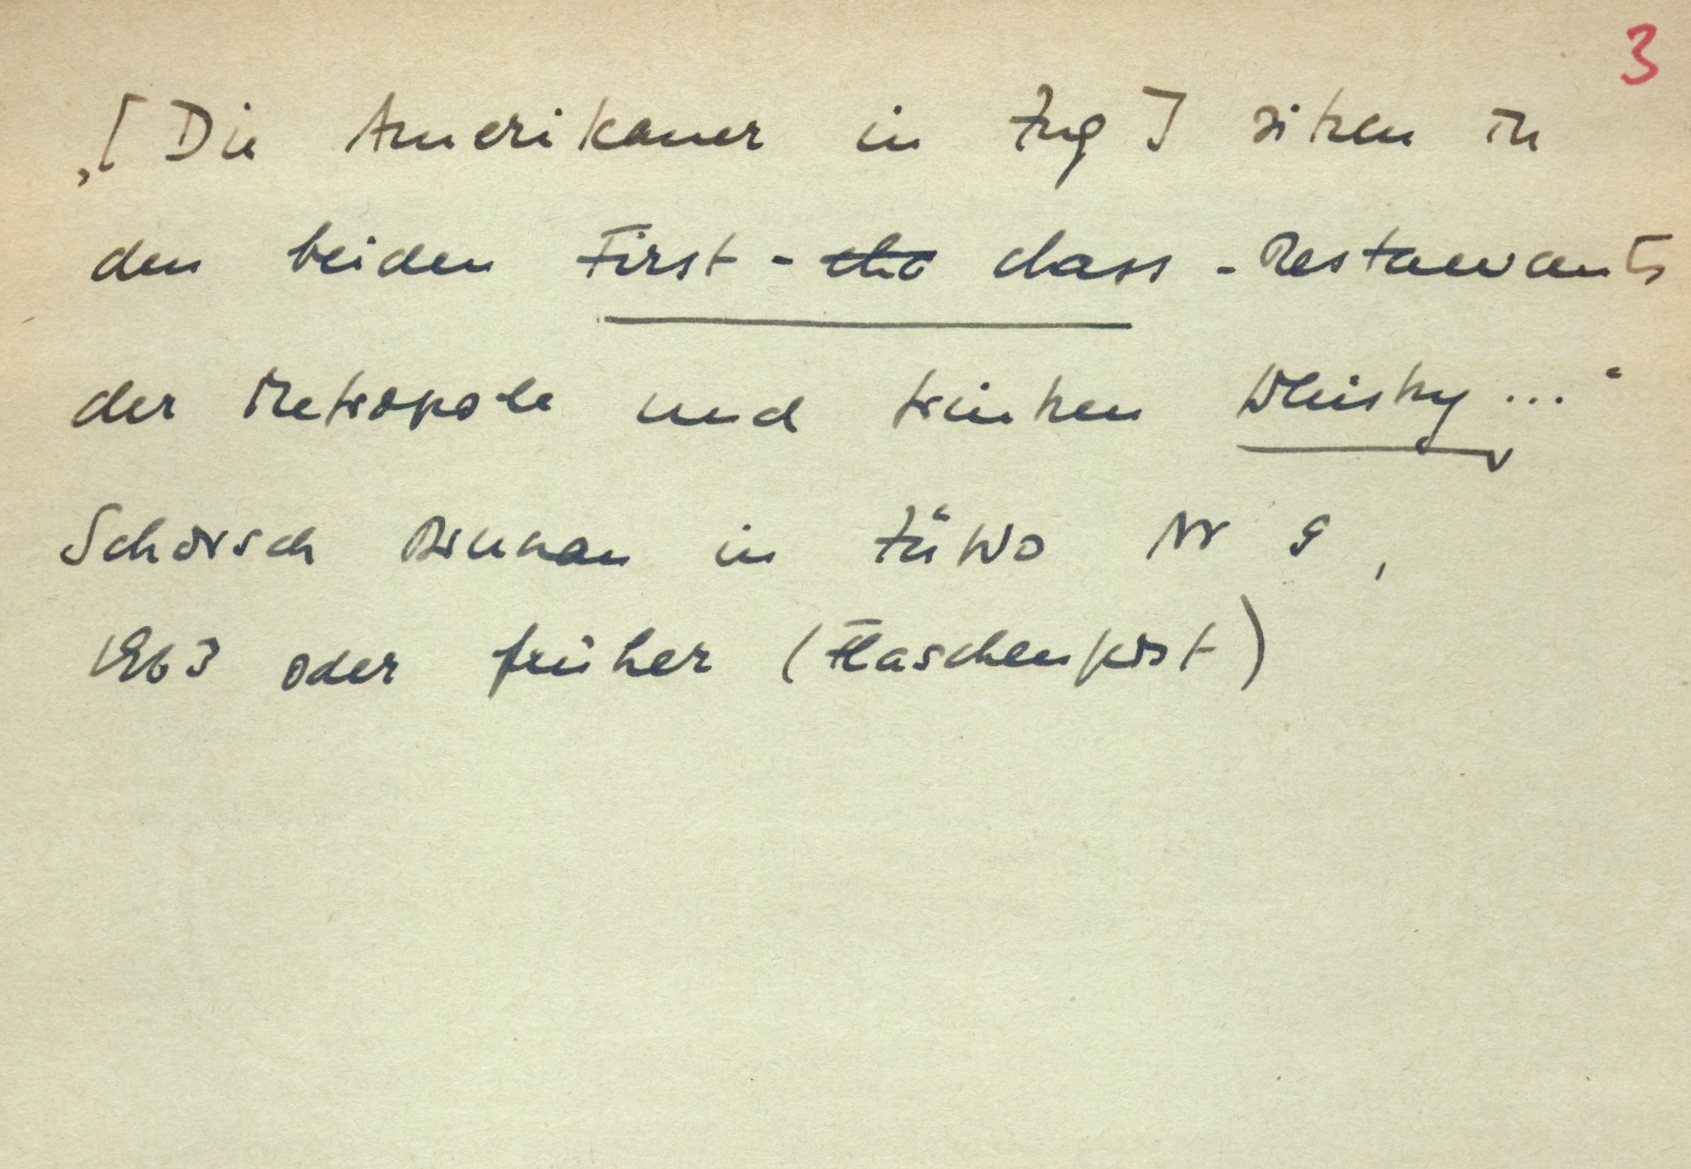 3
„[Die Amerikaner in Zug] sitzen in
den beiden First-class-Restaurants
der Metropole und trinken Whisky..."
Schorsch in ZüWo Nr 9,
1963 oder früher (Flaschenpost)